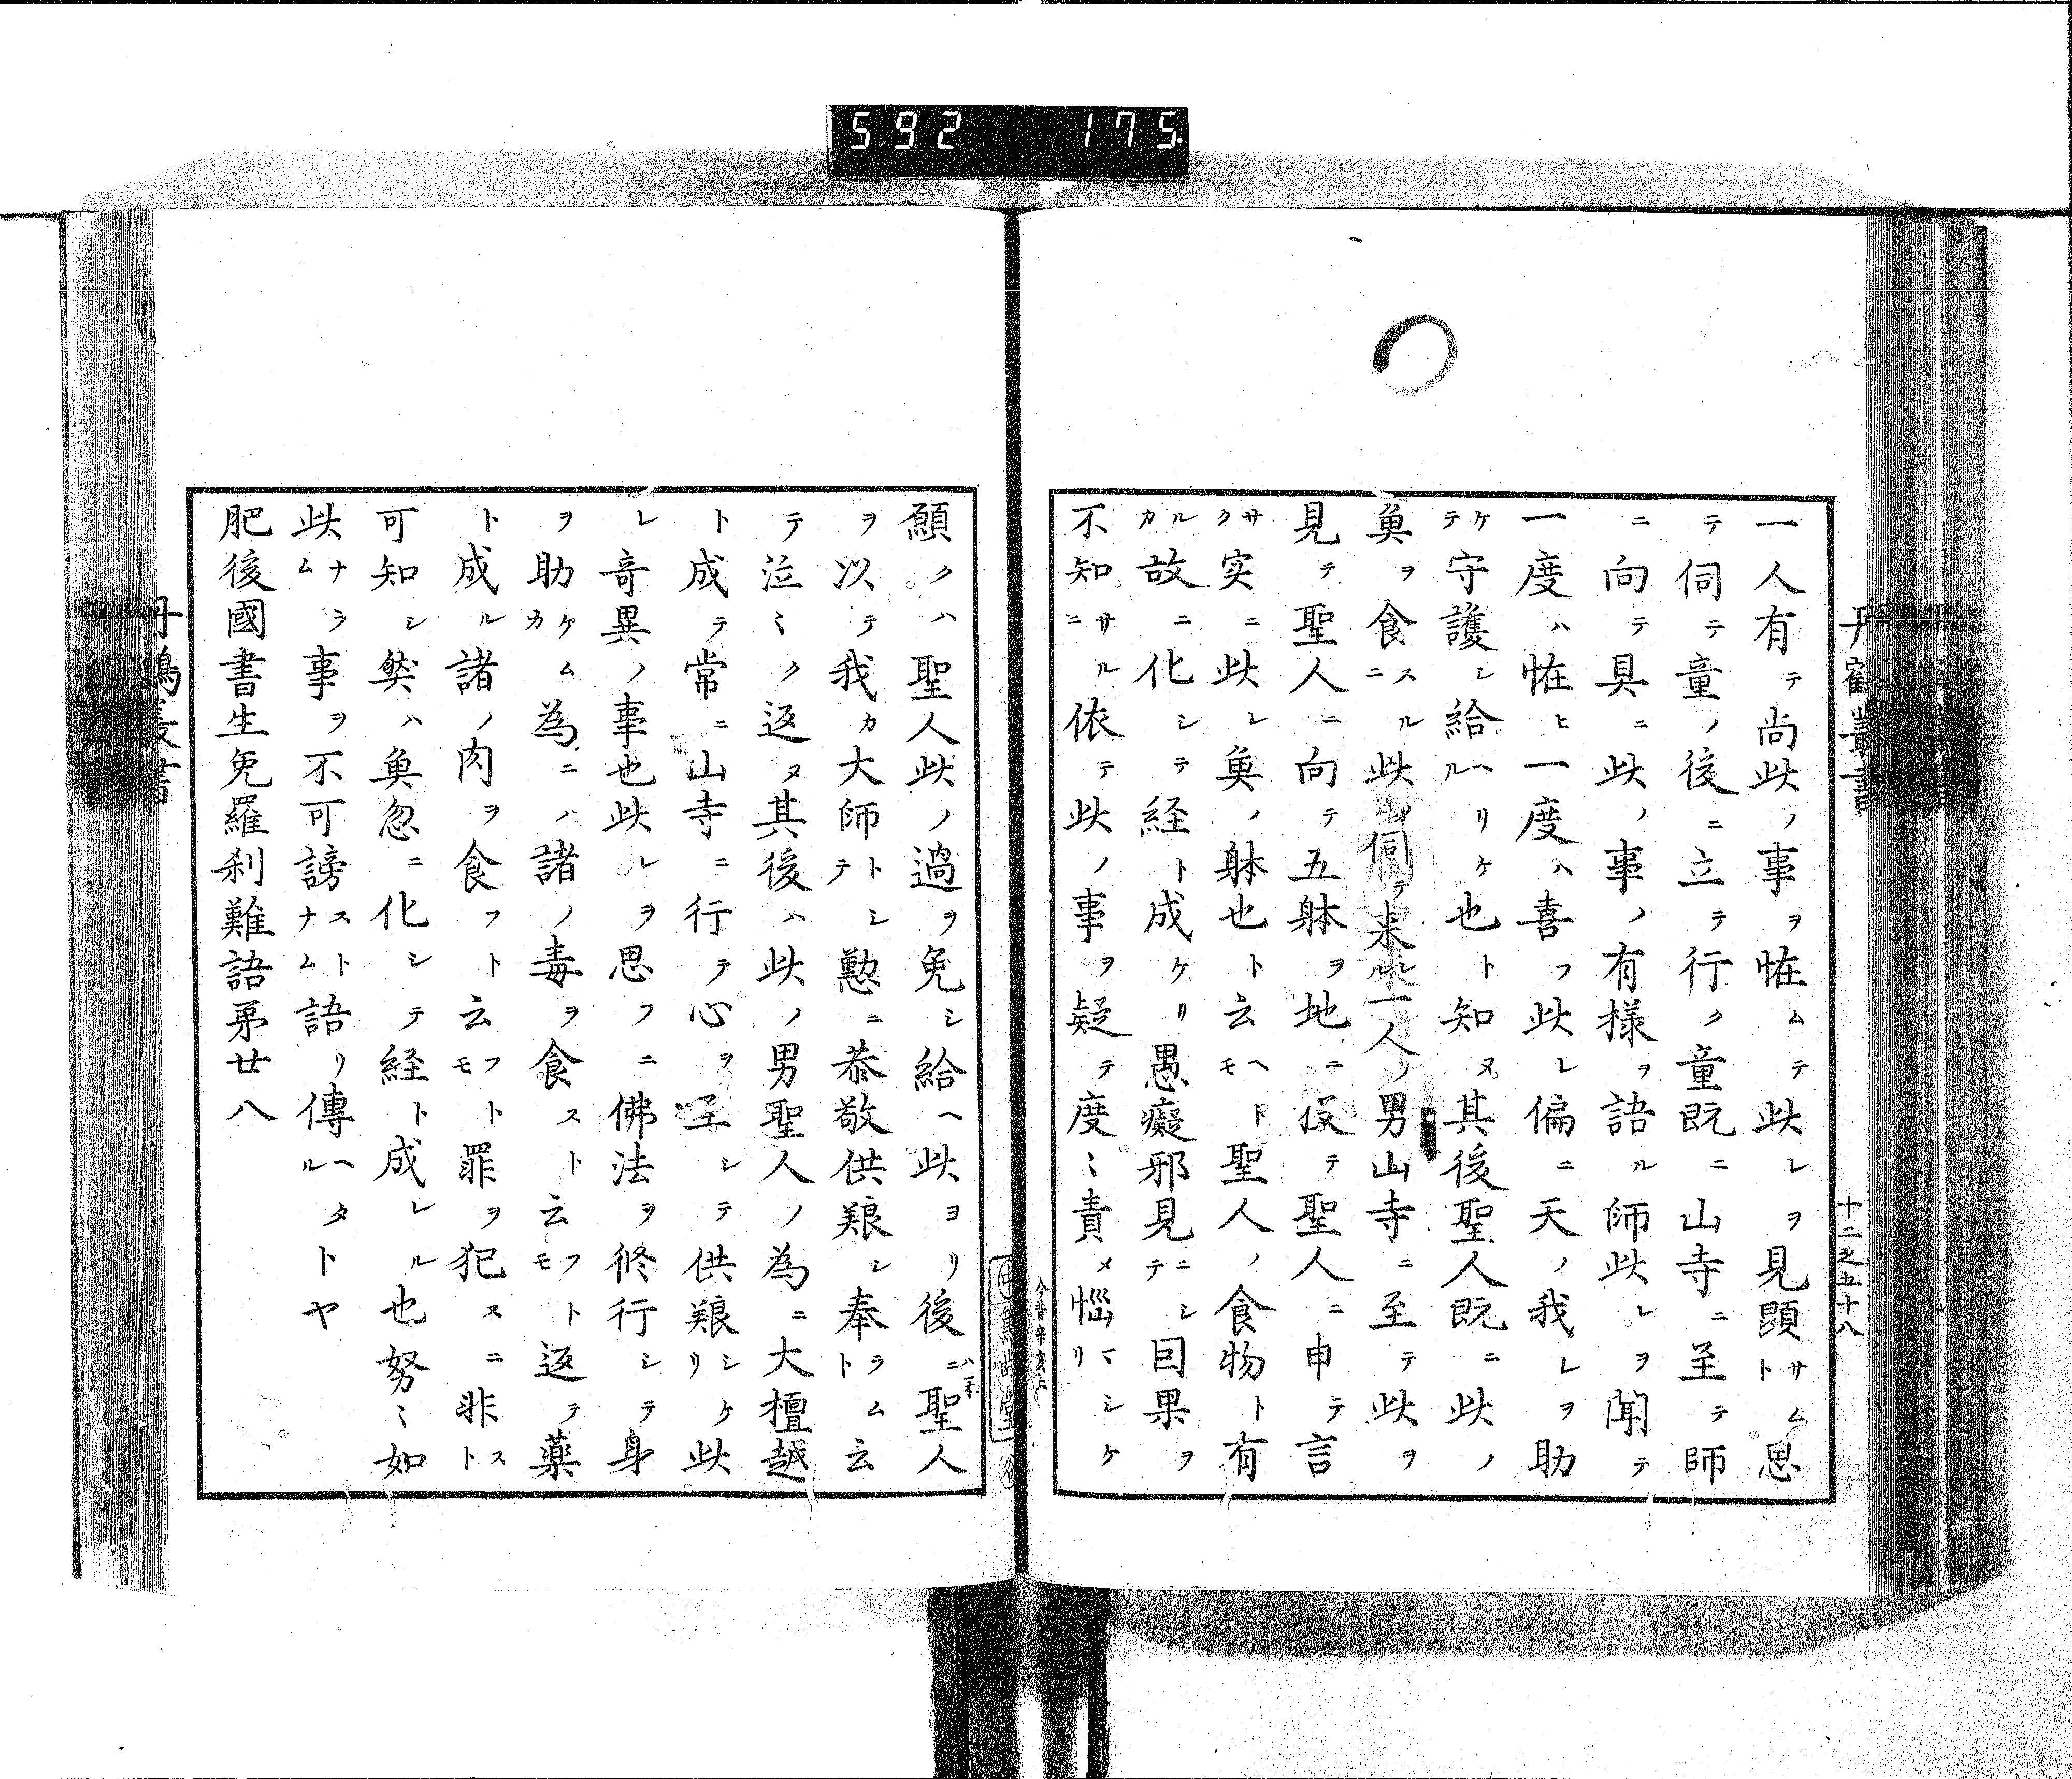 592 175
丹鶴叢書
十二之五十八
一人有テ尚此ノ事ヲ恠ムテ此レヲ見顕サムト思
テ伺テ童ノ後ニ立テ行ク童既ニ山寺ニ至テ師
ニ向テ具ニ此ノ事ノ有様ヲ語ル師此レヲ聞テ
一度ハ恠ヒ一度ハ喜フ此レ偏ニ天ノ我レヲ助
ケテ守護シ給ヘルリケ也ト知ヌ其後聖人既ニ此ノ
魚ヲ食スルニ此伺テ来ルレ一人ノ男山寺ニ至テ此ヲ
見テ聖人ニ向テ五躰ヲ地ニ投テ聖人ニ申テ言
サク実ニ此レ魚ノ躰也ト云ヘトモ聖人ノ食物ト有
ルカ故ニ化シテ経ト成ケリ愚癡邪見ニシテ因果ヲ
不知サルニ依テ此ノ事ヲ疑テ度〻責メ悩マシケリ
今昔 辛亥上
願クハ聖人此ノ過ヲ免シ給ヘ此ヨリ後ニハ一本聖人
ヲ以テ我カ大師トシテ懃ニ恭敬供養シ奉ラムト云
テ泣〻ク返ヌ其後ハ此ノ男聖人ノ為ニ大檀越
ト成テ常ニ山寺ニ行テ心ヲ至シテ供養シケリ此
レ奇異ノ事也此レヲ思フニ佛法ヲ修行シテ身
ヲ助ケムカ為ニハ諸ノ毒ヲ食スト云フトモ返テ薬
ト成ル諸ノ肉ヲ食フト云フトモ罪ヲ犯スニ非スト
可知シ然ハ魚忽ニ化シテ経ト成レル也努〻如
此ナラム事ヲ不可謗ストナム語リ傳ヘタルトヤ
肥後國書生免羅刹難語弟廿八